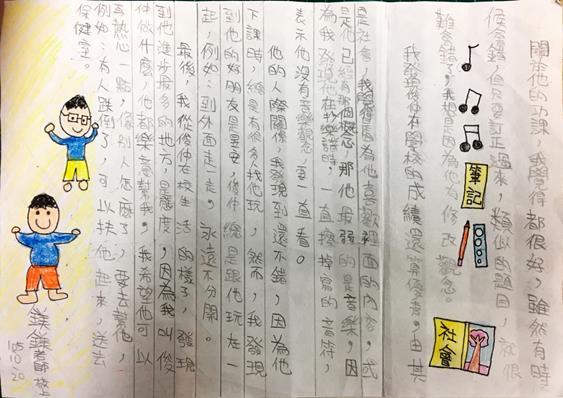 關於他的功課，我覺得都很好，雖然有時
候答錯，但只要訂正過來，類似的題目，就很
難答錯了，我想是因為他有修改觀念。
筆記
我發覺俊仲在學校的成績還算優秀。由其
是社會，我覺得因為他喜歡裡面的內容，或
社會
是他已經有那個概念，那他最弱的是音樂，因
為我發現他在抄樂譜時，一直擦掉寫的音符，
表示他沒有音樂觀念，要一直看。
他的人際關係，我發現到還不錯，因為他
下課時，總是有很多人找他玩，然而，我發現
到他的好朋友是，俊仲總是跟他玩在一
起，例如：到外面走一走，永遠不分開。
最後，我從俊仲在校生活的樣子，發現
到他進步最多的地方，是態度，因為我叫俊
仲做什麼，他都樂意幫我。我希望他可以
再熱心一點，像別人怎麼了，要去幫他，
例如：有人跌倒了，可以扶他起來，送去
保健室。
鎂鎂老師 格上
105
10.20